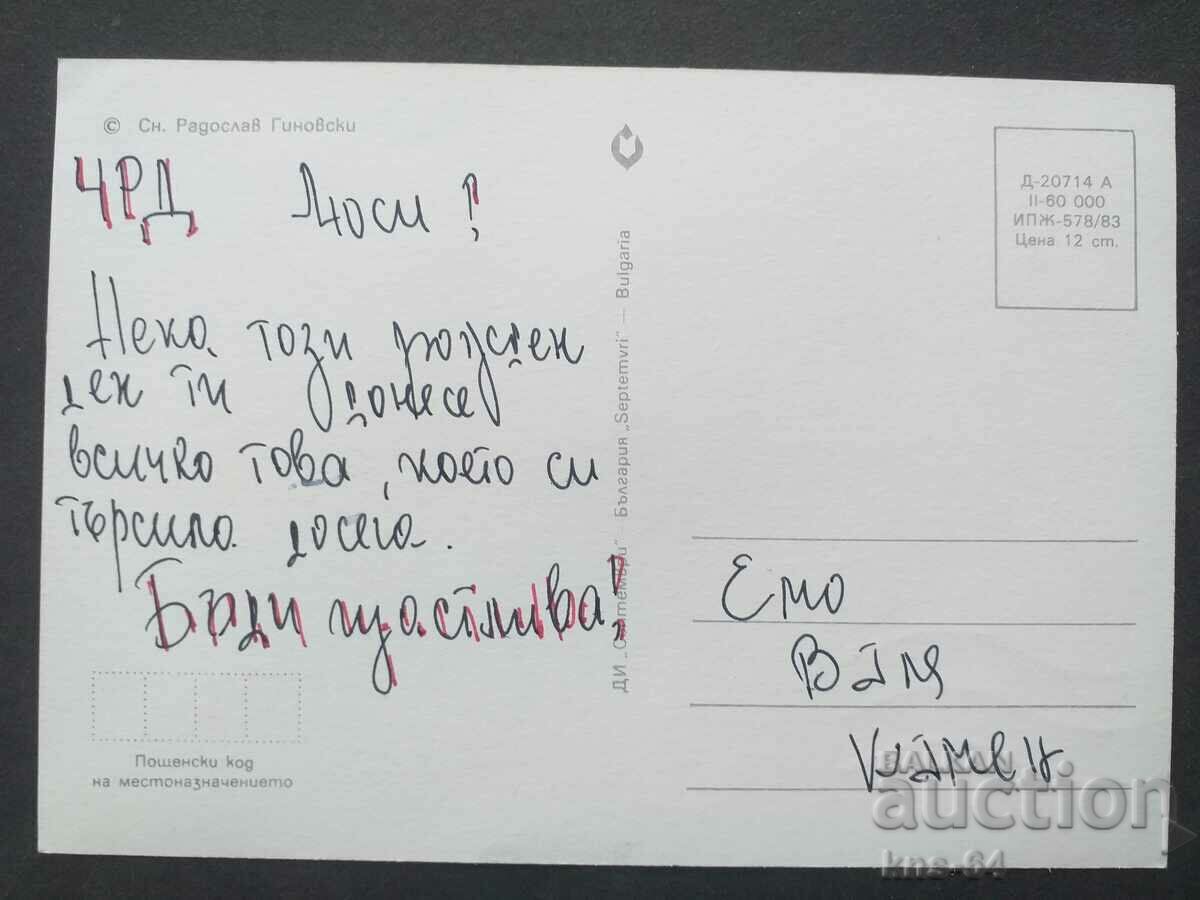 © Сн. Радослав Гиновски
ЧРД Люси!
Нека този рожден
ден ти донесе
всичко това, което си
търсила досега.
Бъди щастлива!
Пощенски код
на местоназначението
ДИ „Септември“ — България „Septemvri“ — Bulgaria
Д-20714 А
II-60 000
ИПЖ-578/83
Цена 12 ст.
Емо
Валя
Камен
BALKAN
auction
kns-64